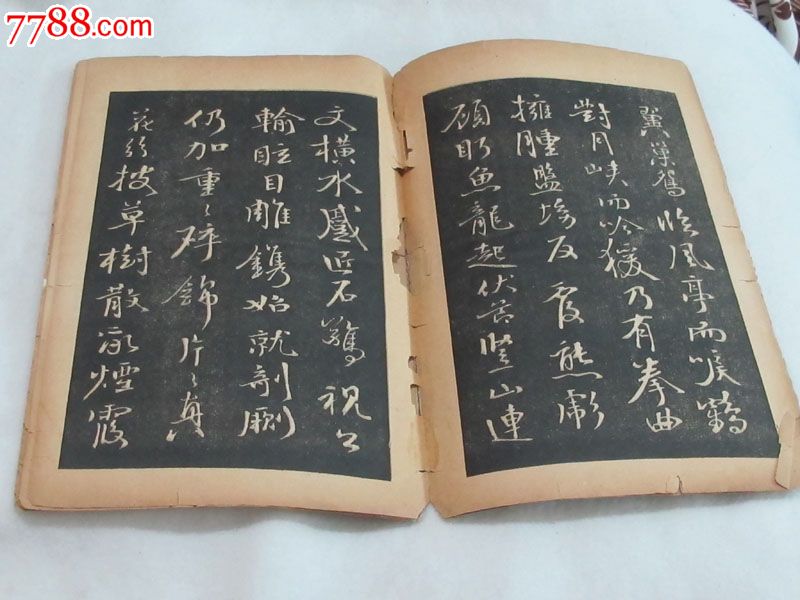 7788.com
翼巢鴛臨風亭而唳鶴
對月峽而吟猨乃有拳曲
擁腫盤坳反覆熊彪
顧盼魚龍起伏節豎山連
文橫水蹙匠石驚視公
輸眩目雕鐫始就剞劂
仍加重々碎錦片々真
花紛披草樹散亂煙霞